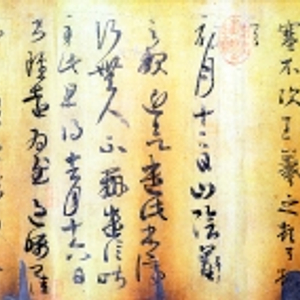 塞不次王羲之頓首
初月十二日山陰羲
之報近欲遣此書停
行無人不辦遣信昨
至此且得去月十六日
書雖遠為慰過囑卿佳